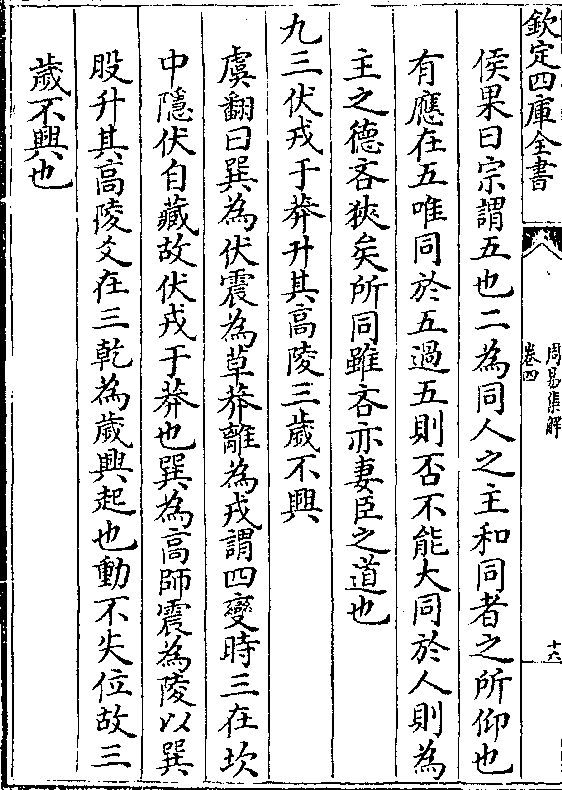 欽定四庫全書
周易集解
卷四
十六
侯果曰宗謂五也二為同人之主和同者之所仰也
有應在五唯同於五過五則否不能大同於人則為
主之德吝狹矣所同雖吝亦妻臣之道也
九三伏戎于莽升其高陵三歲不興
虞翻曰巽為伏震為草莽離為戎謂四變時三在坎
中隱伏自藏故伏戎于莽也巽為高師震為陵以巽
股升其高陵爻在三乾為歲興起也動不失位故三
歲不興也